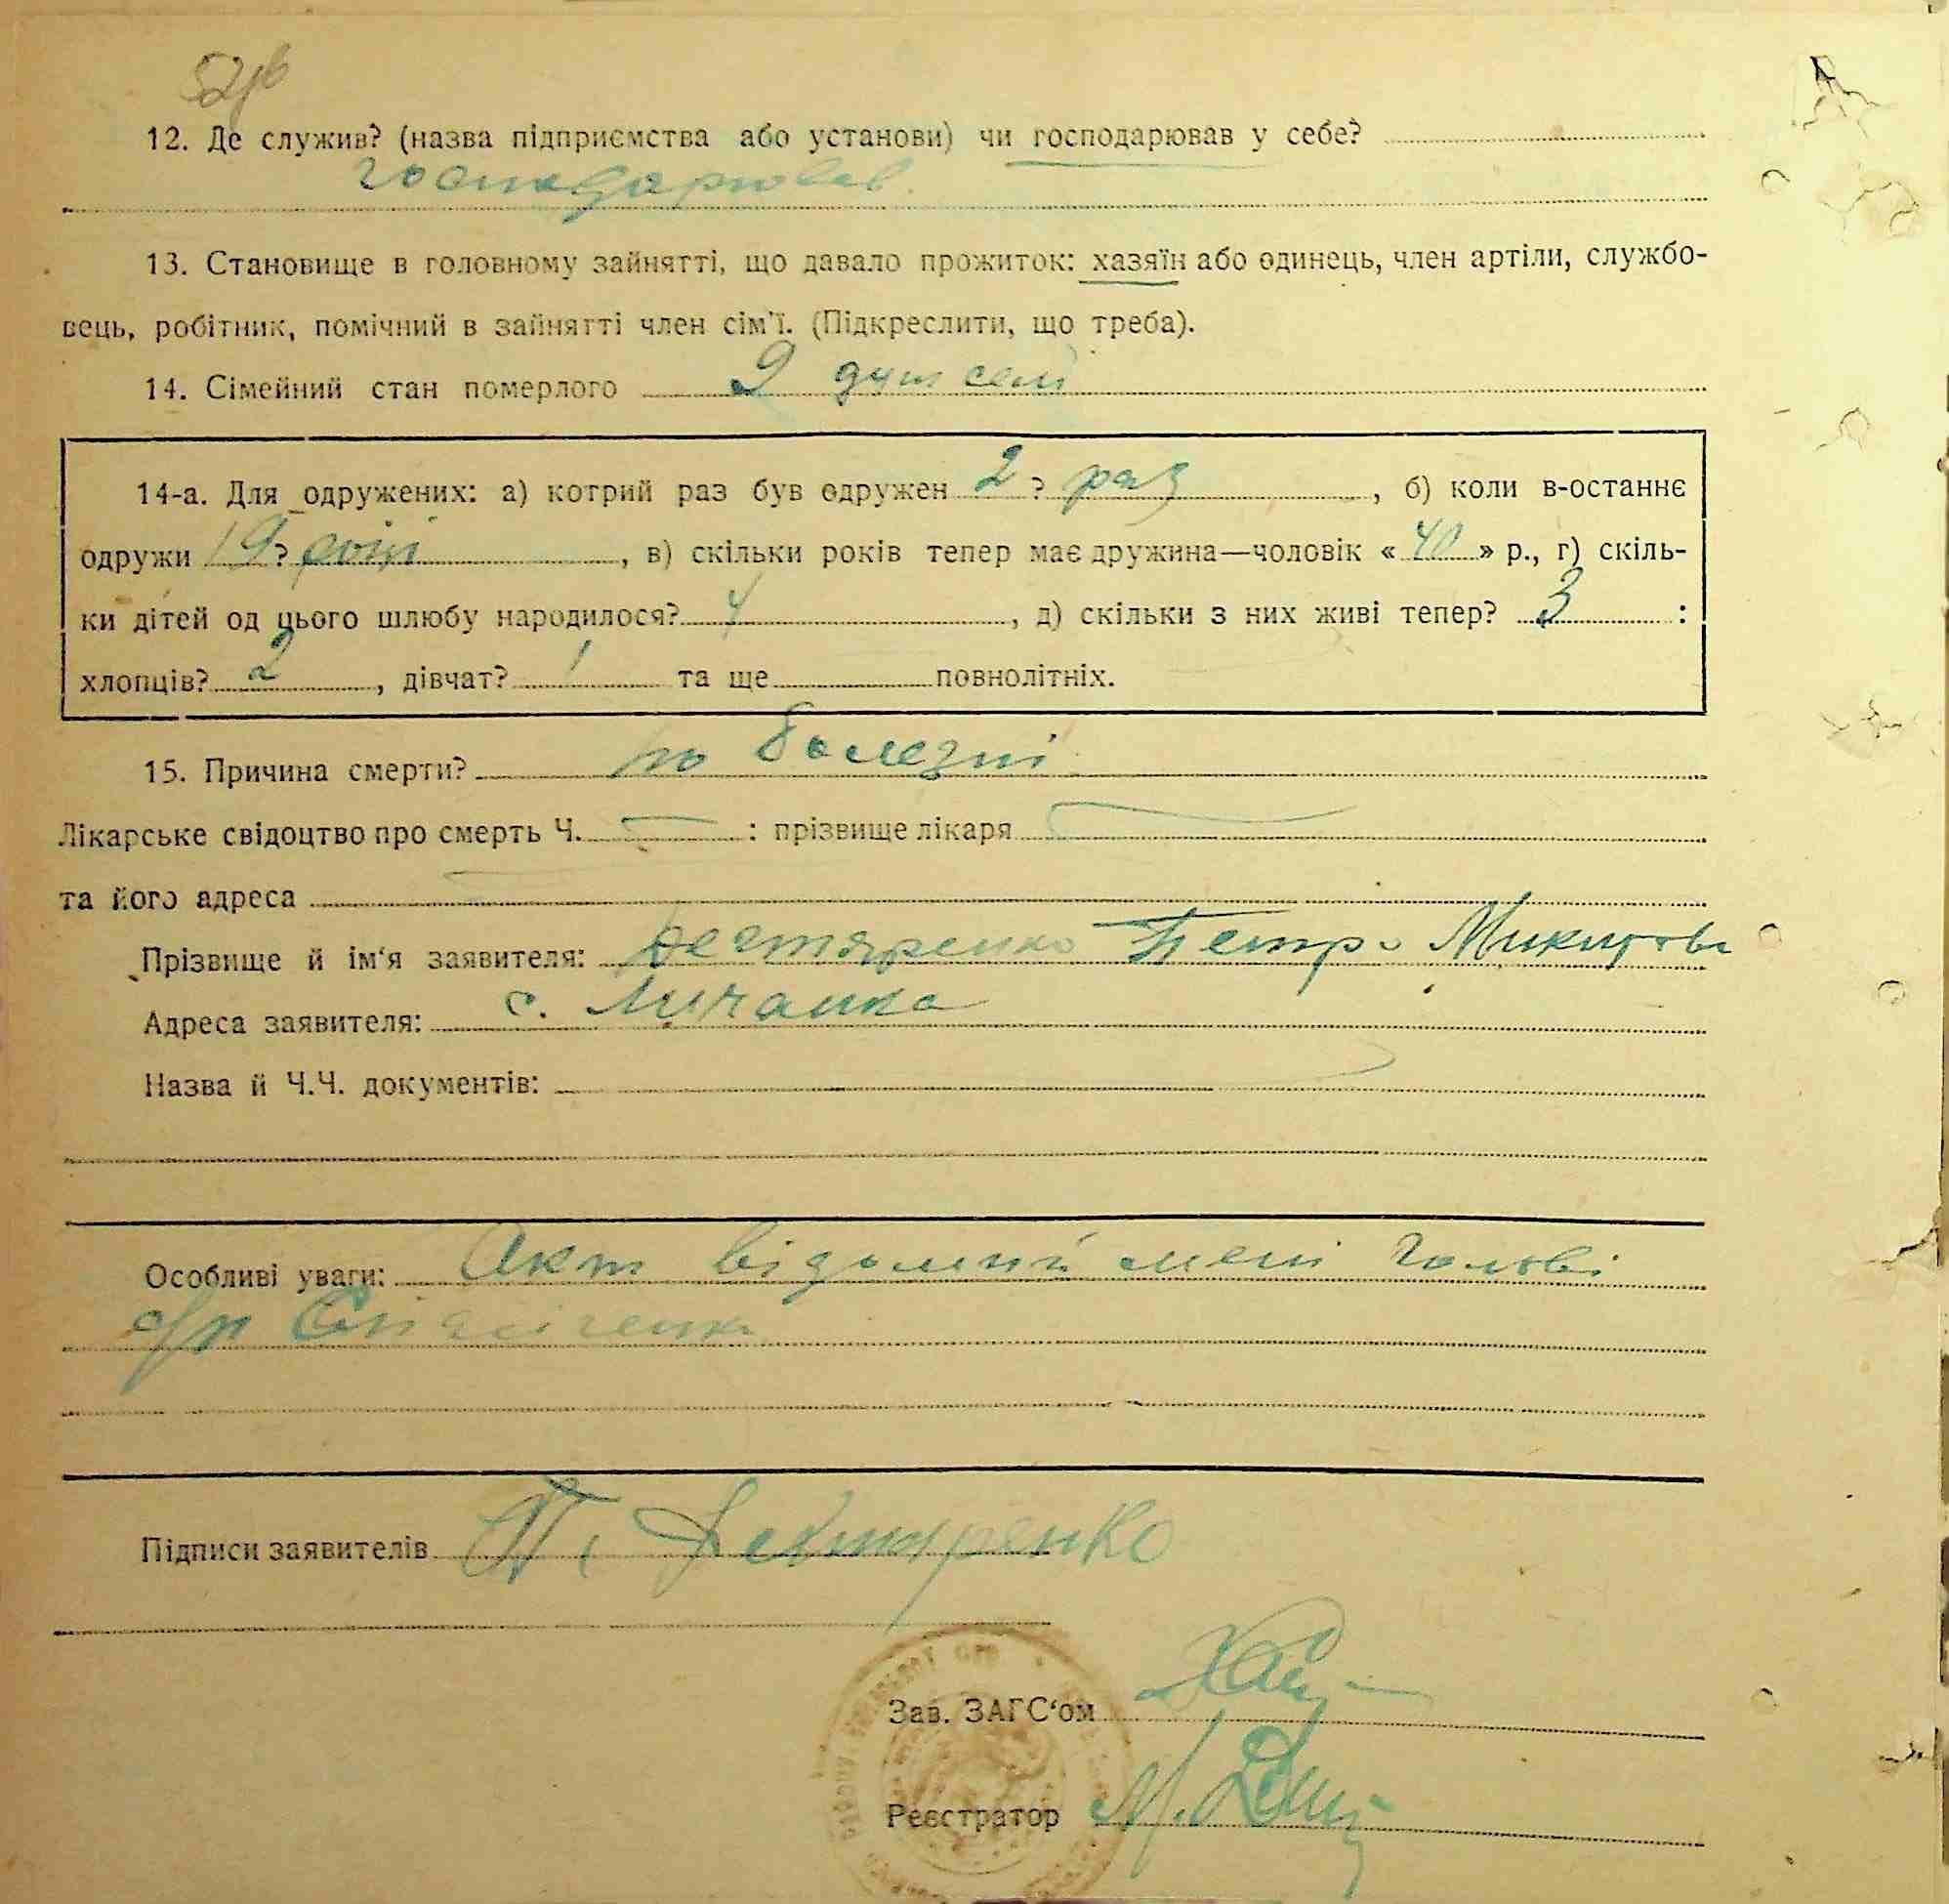 52зв
12. Де служив? (назва підприємства або установи) чи господарював у себе?
господарював.
13. Становище в головному зайнятті, що давало прожиток: хазяїн або одинець, член артіли, службо-
вець, робітник, помічний в зайнятті член сім'ї. (Підкреслити, що треба).
14. Сімейний стан померлого 2 душ семі
14-а. Для одружених: а) котрий раз був одружен 2 ? раз, б) коли в-останнє
одружи 19? році, в) скільки років тепер має дружина—чоловік «40» р., г) скіль-
ки дітей од цього шлюбу народилося? 4, д) скільки з них живі тепер? 3 :
хлопців? 2, дівчат? 1 та ще повнолітніх.
15. Причина смерти? по болезні
Лікарське свідоцтво про смерть Ч. — : прізвище лікаря
та його адреса
Прізвище й ім'я заявителя: Дегтяренко Петро Микитов
Адреса заявителя: с. Личанка
Назва й Ч.Ч. документів:
Особливі уваги: Акт відомий мені голові
с/р
Підписи заявителів П. Дехтяренко
Зав. ЗАГС'ом
Реєстратор